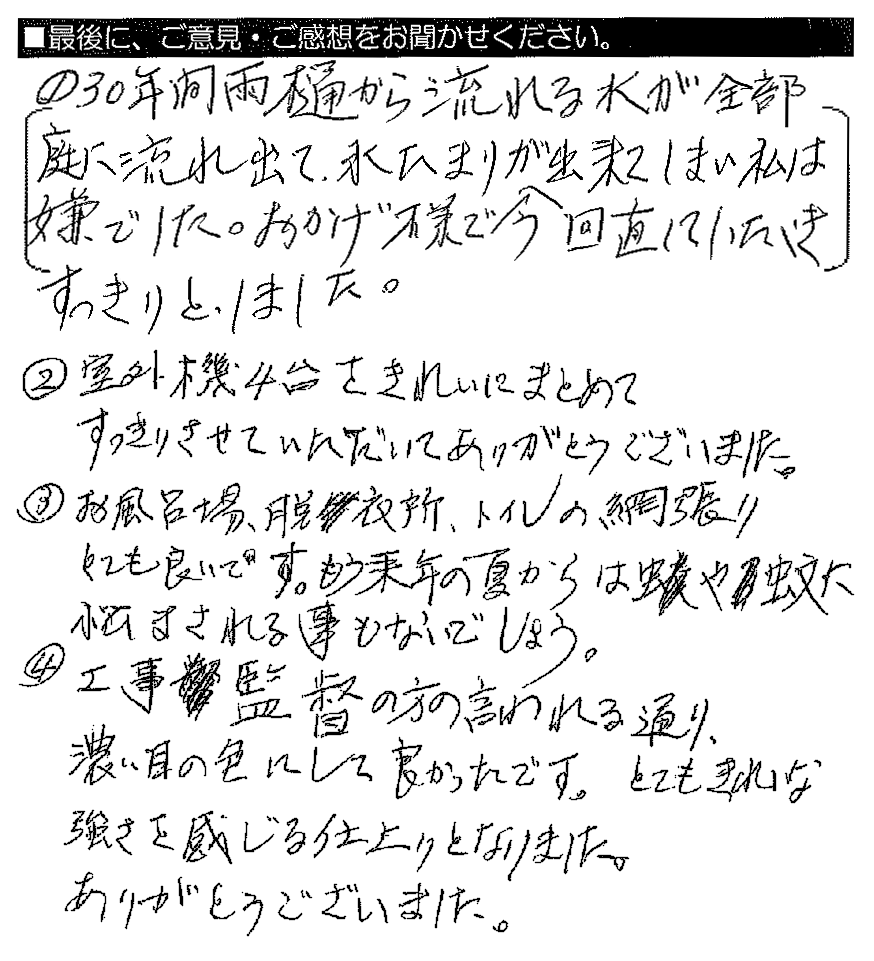 ■最後に、ご意見・ご感想をお聞かせください。
①30年間雨樋から流れる水が全部
庭に流れ出て、水たまりが出来てしまい私は
嫌でした。おかげ様で今回直していただき
すっきりとしました。
②室外機4台をきれいにまとめて
すっきりさせていただいてありがとうございました。
③お風呂場、脱衣所、トイレの網張り
とても良いです。もう来年の夏からは や蚊に
悩まされる事もないでしょう。
④工事監督の方の言われる通り、
濃い目の色にして良かったです。とてもきれいな
強さを感じる仕上りとなりました。
ありがとうございました。